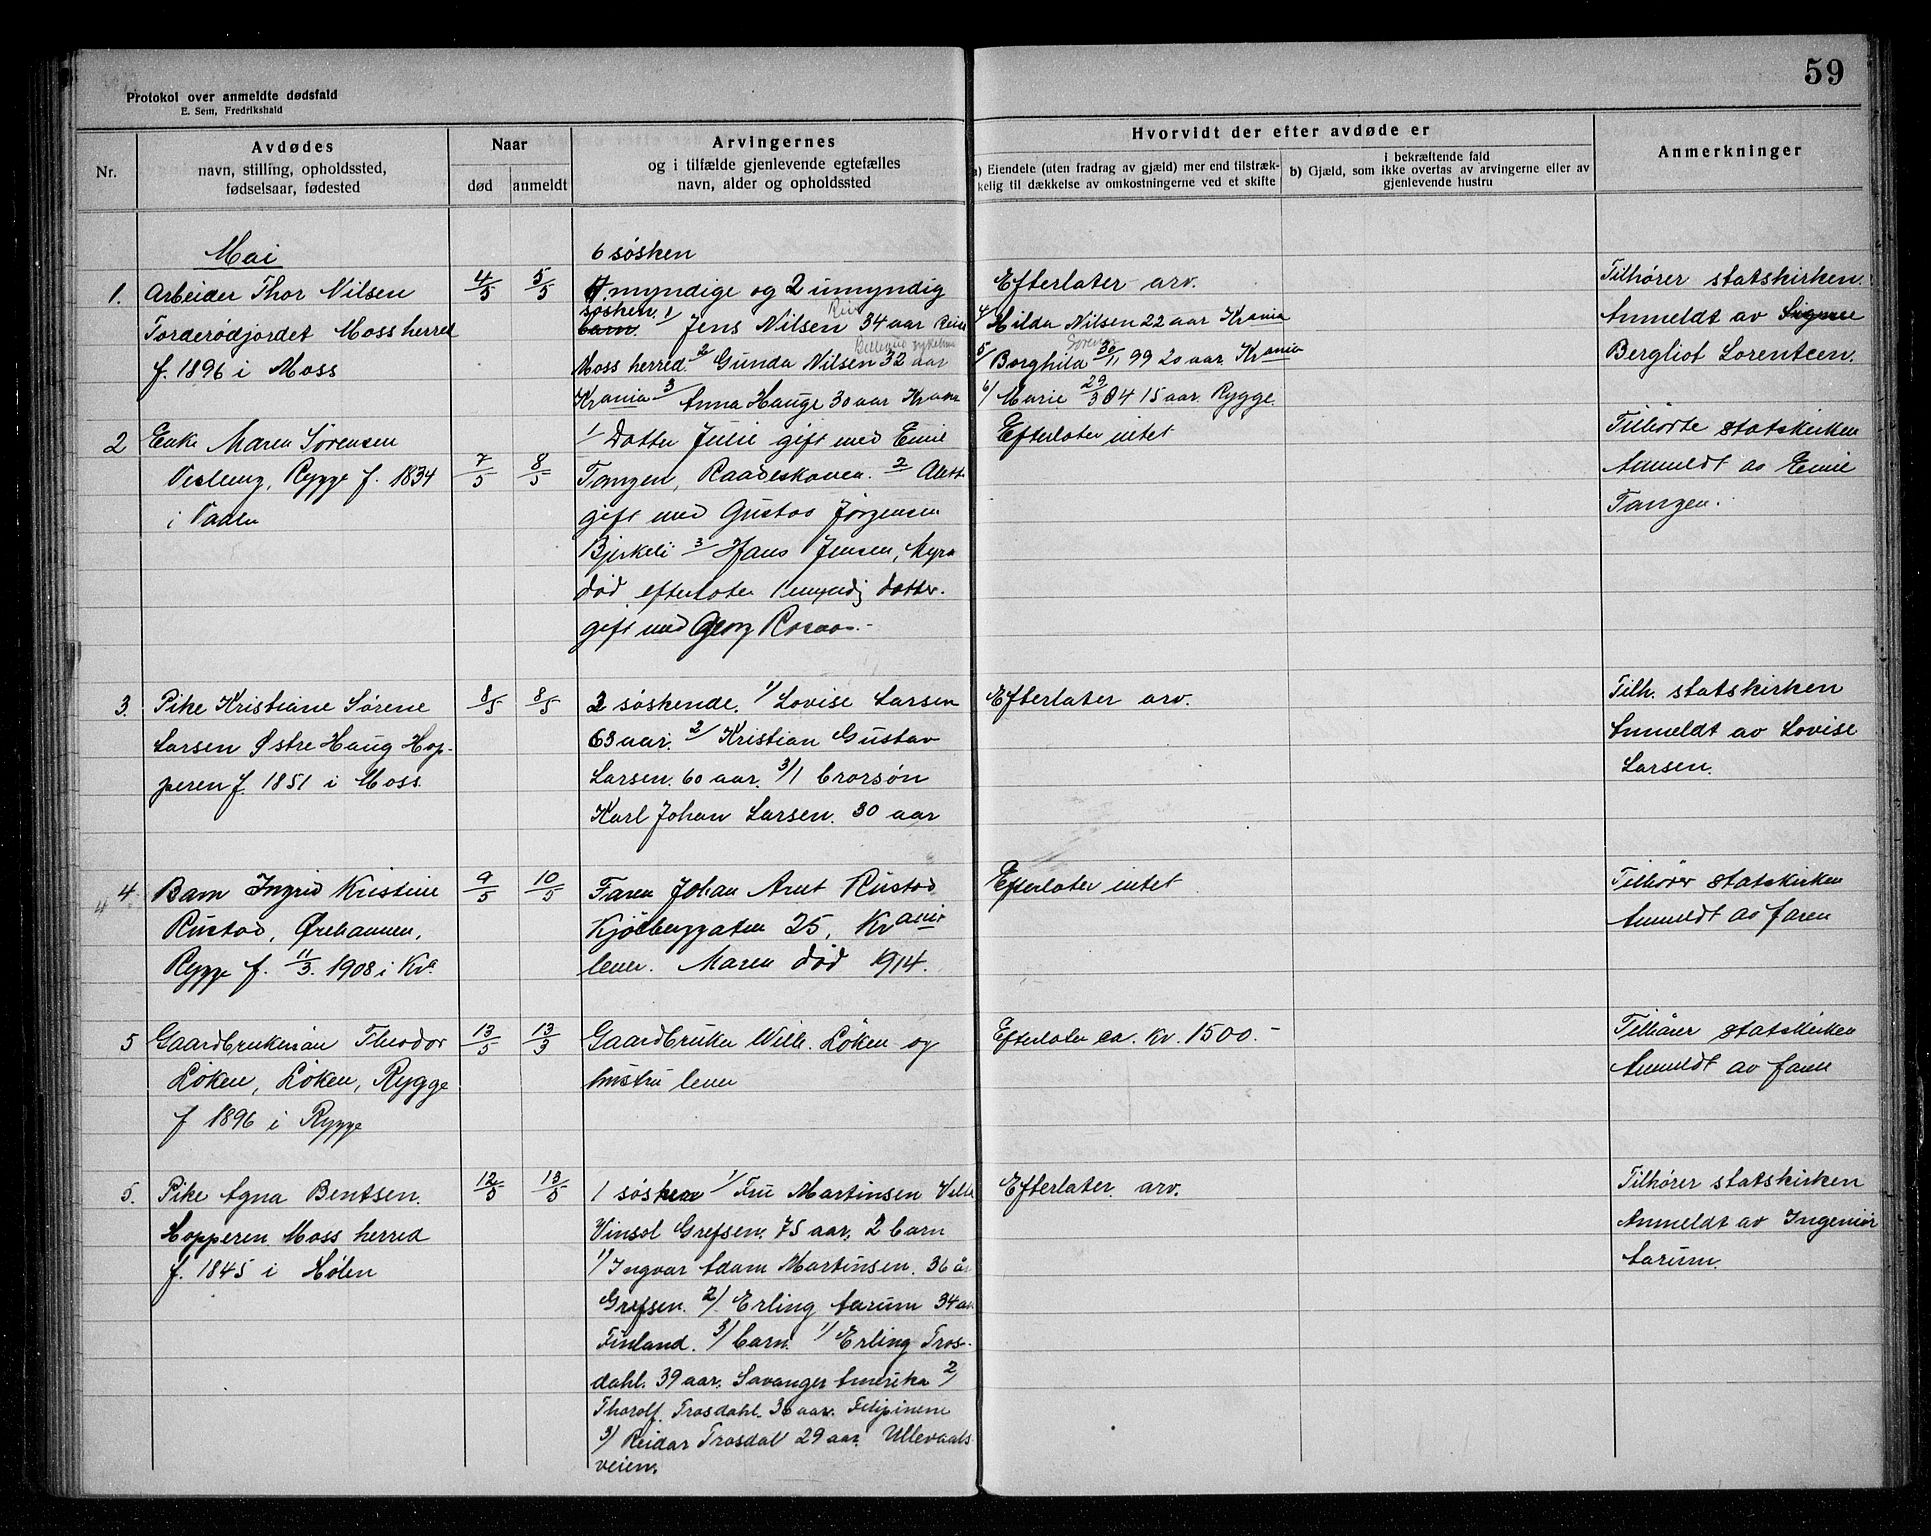 59
Protokol over anmeldte dødsfald
E. Sem, Fredrikshald
Nr.
Avdødes
navn, stilling, opholdssted,
fødselsaar, fødested
Naar
død
anmeldt
Arvingernes
og i tilfælde gjenlevende egtefælles
navn, alder og opholdssted
Hvorvidt der efter avdøde er
a) Eiendele (uten fradrag av gjæld) mer end tilstræk-
kelig til dækkelse av omkostningerne ved et skifte
i bekræftende fald
b) Gjæld, som ikke overtas av arvingerne eller av
gjenlevende hustru
Anmerkninger
Mai
1. Arbeider Thor Nilsen
Torderødjordet Moss herred
f. 1896 i Moss
4/5
5/5
6 søsken
4 myndige og 2 umyndig
søsken. 1/ Jens Nilsen 34 aar
barn.
Moss herred. 2/ Gunda Nilsen 32 aar
Krania 3/ Anna Hauge 30 aar Krania
Efterlater arv.
4/ Hilda Nilsen 22 aar Krania
5/ Borghild 30/11 99 20 aar. Krania
6/ Marie 29/3 04 15 aar. Rygge
Tilhører statskirken.
Anmeldt av
Bergliot Lorentsen.
2 Enke Maren Sørensen
Vesteng, Rygge f. 1834
i Vaaler
7/5
8/5
1/ Datter Julie gift med Emil
Tangen, Raadeskoven. 2/
gift med Gustav Jørgensen
Bjerkeli 3/ Hans Jensen, Myra
død efterlater 1 myndig datter.
gift med Georg
Efterlater intet
Tilhørte statskirken
Anmeldt av Emil
Tangen.
3. Pike Kristiane Sørene
Larsen Østre Haug Hop-
peren f. 1851 i Moss.
8/5
8/5
2 søskende. 1/ Lovise Larsen
63 aar. 2/ Kristian Gustav
Larsen. 60 aar. 3/ 1 brorsøn
Karl Johan Larsen. 30 aar
Efterlater arv.
Tilh. statskirken
Anmeldt av Lovise
Larsen.
4
4. Barn Ingrid Kristine
Rustad, Ørehavnen,
Rygge f. 11/3 1908 i Kra
9/5
10/5
Faren Johan Arnt Rustad
Kjølberggaten 25, Krania
lever. Maren død 1914.
Efterlater intet
Tilhører statskirken
Anmeldt av faren
5 Gaardbrukersøn Theodor
Løken, Løken, Rygge
f 1896 i Rygge
13/5
13/3
Gaardbruker Wilh. Løken og
hustru lever
Efterlater ca. kr. 1500.-
Tilhører statskirken
Anmeldt av faren
5. Pike Agna Bentsen.
Hopperen. Moss herred
f. 1845 i Hølen
12/5
13/5
1 søsken 1/ Fru Martinsen Villa
Vinsol Grefsen. 75 aar. 2 barn
1/ Ingvar Adam Martinsen. 36 år
Grefsen. 2/ Erling Aarum 34 aar
Finland. 3/ barn. 1/ Erling Tros-
dahl. 39 aar. Savanger Amerika 2/
Thorolf. Trosdahl. 36 aar. Filipinene
3/ Reidar Trosdal 29 aar. Ullevaals-
veien.
Efterlater arv.
Tilhører statskirken
Anmeldt av Ingeniør
Aarum.